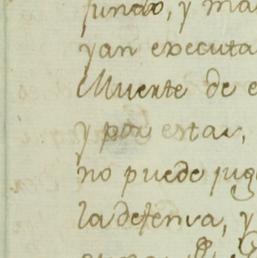 fundo, y ma
yan executa
Muerte de e
y por estar,
no puede jug
la defensa, y